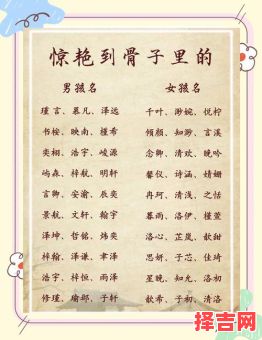 惊艳到骨子里的
男孩名 女孩名
瑾言、慕凡、泽远 千叶、渺婉、悦柠
书桉、映南、槿希 倾颜、知渺、言溪
奕栩、浩宇、峻源 念卿、清欢、晚吟
屿森、梓航、明轩 馨仪、诗涵、婧姗
言卿、安渝、辰奕 冉珂、清浅、之恬
景航、文轩、翰宇 暮雨、洛伊、槿萱
泽坤、哲铭、炜奕 洛心、芷岚、歆甜
梓翰、泽谦、聿泽 思妍、子芯、佳琦
浩宇、梓恒、雨泽 星晚、知允、洛初
修瑾、瑜邵、子轩 歆希、子初、清洛
择吉网